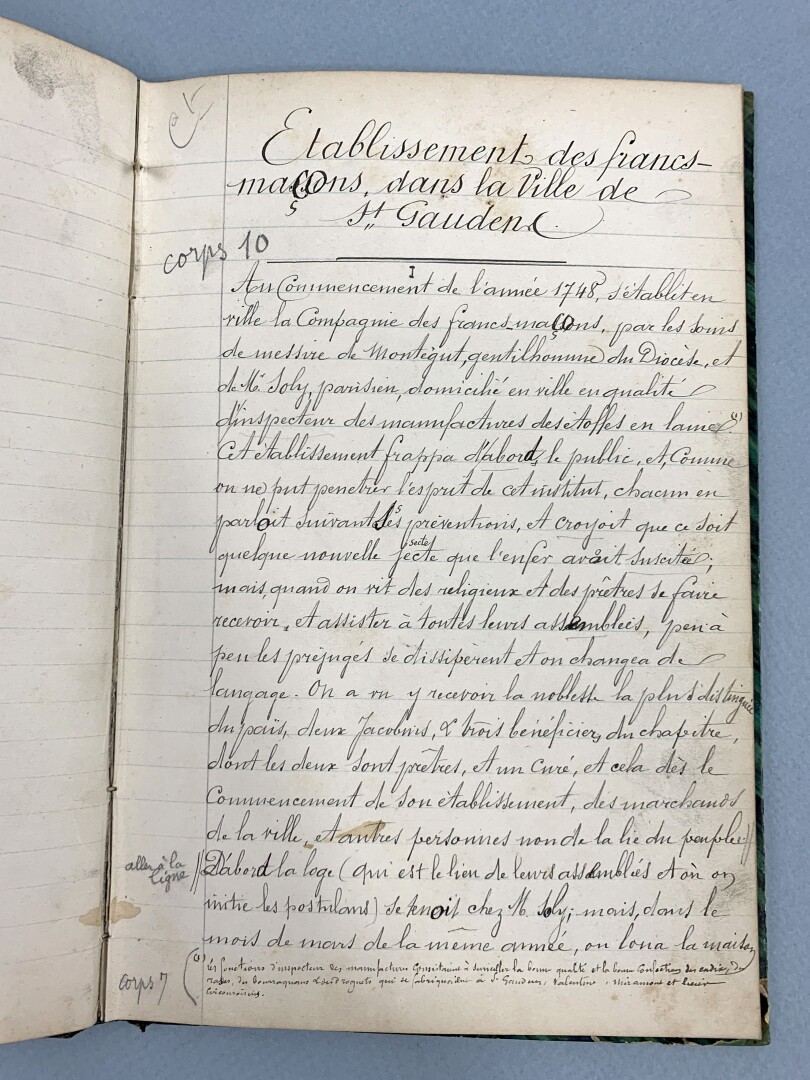 Etablissement des francs-
maçons, dans la Ville de
St Gaudens.
corps 10
I
Au Commencement de l'année 1748, s'établit en
ville la Compagnie des francs-maçons, par les soins
de messire de Montégut, gentilhomme du Diocèse, et
de Mr Soly, parisien, domicilié en ville en qualité
d'inspecteur des manufactures des étoffes en laine (1)
Cet établissement frappa d'abord, le public, et, Comme
on ne put penetrer l'esprit de cet institut, chacun en
parloit suivant ses préventions, et croyoit que ce soit
quelque nouvelle secte que l'enfer avait suscitée;
secte
mais, quand on vit des religieux et des prêtres se faire
recevoir, et assister à toutes leurs assemblées, peu à
peu les préjugés se dissipèrent et on changea de
langage. On a vu y recevoir la noblesse la plus distinguée
du païs, deux Jacobins, & trois bénéficiers du chapitre,
dont les deux sont prêtres, et un curé, et cela dès le
Commencement de son établissement, des marchands
de la ville, et autres personnes non de la lie du peuple. //
aller à la
ligne
// D'abord la loge (qui est le lieu de leurs assemblées et où on
initie les postulans) se tenoit chez M. Soly; mais, dans le
mois de mars de la même année, on loua la maison
corps 7
(1) Les fonctions d'inspecteur des manufactures consistaient à surveiller la bonne qualité et la bonne confection des cadis, des
rases, des bourraquans & des droguets qui se fabriquaient à St Gaudens, Valentine, Miramont et lieux
circonvoisins.